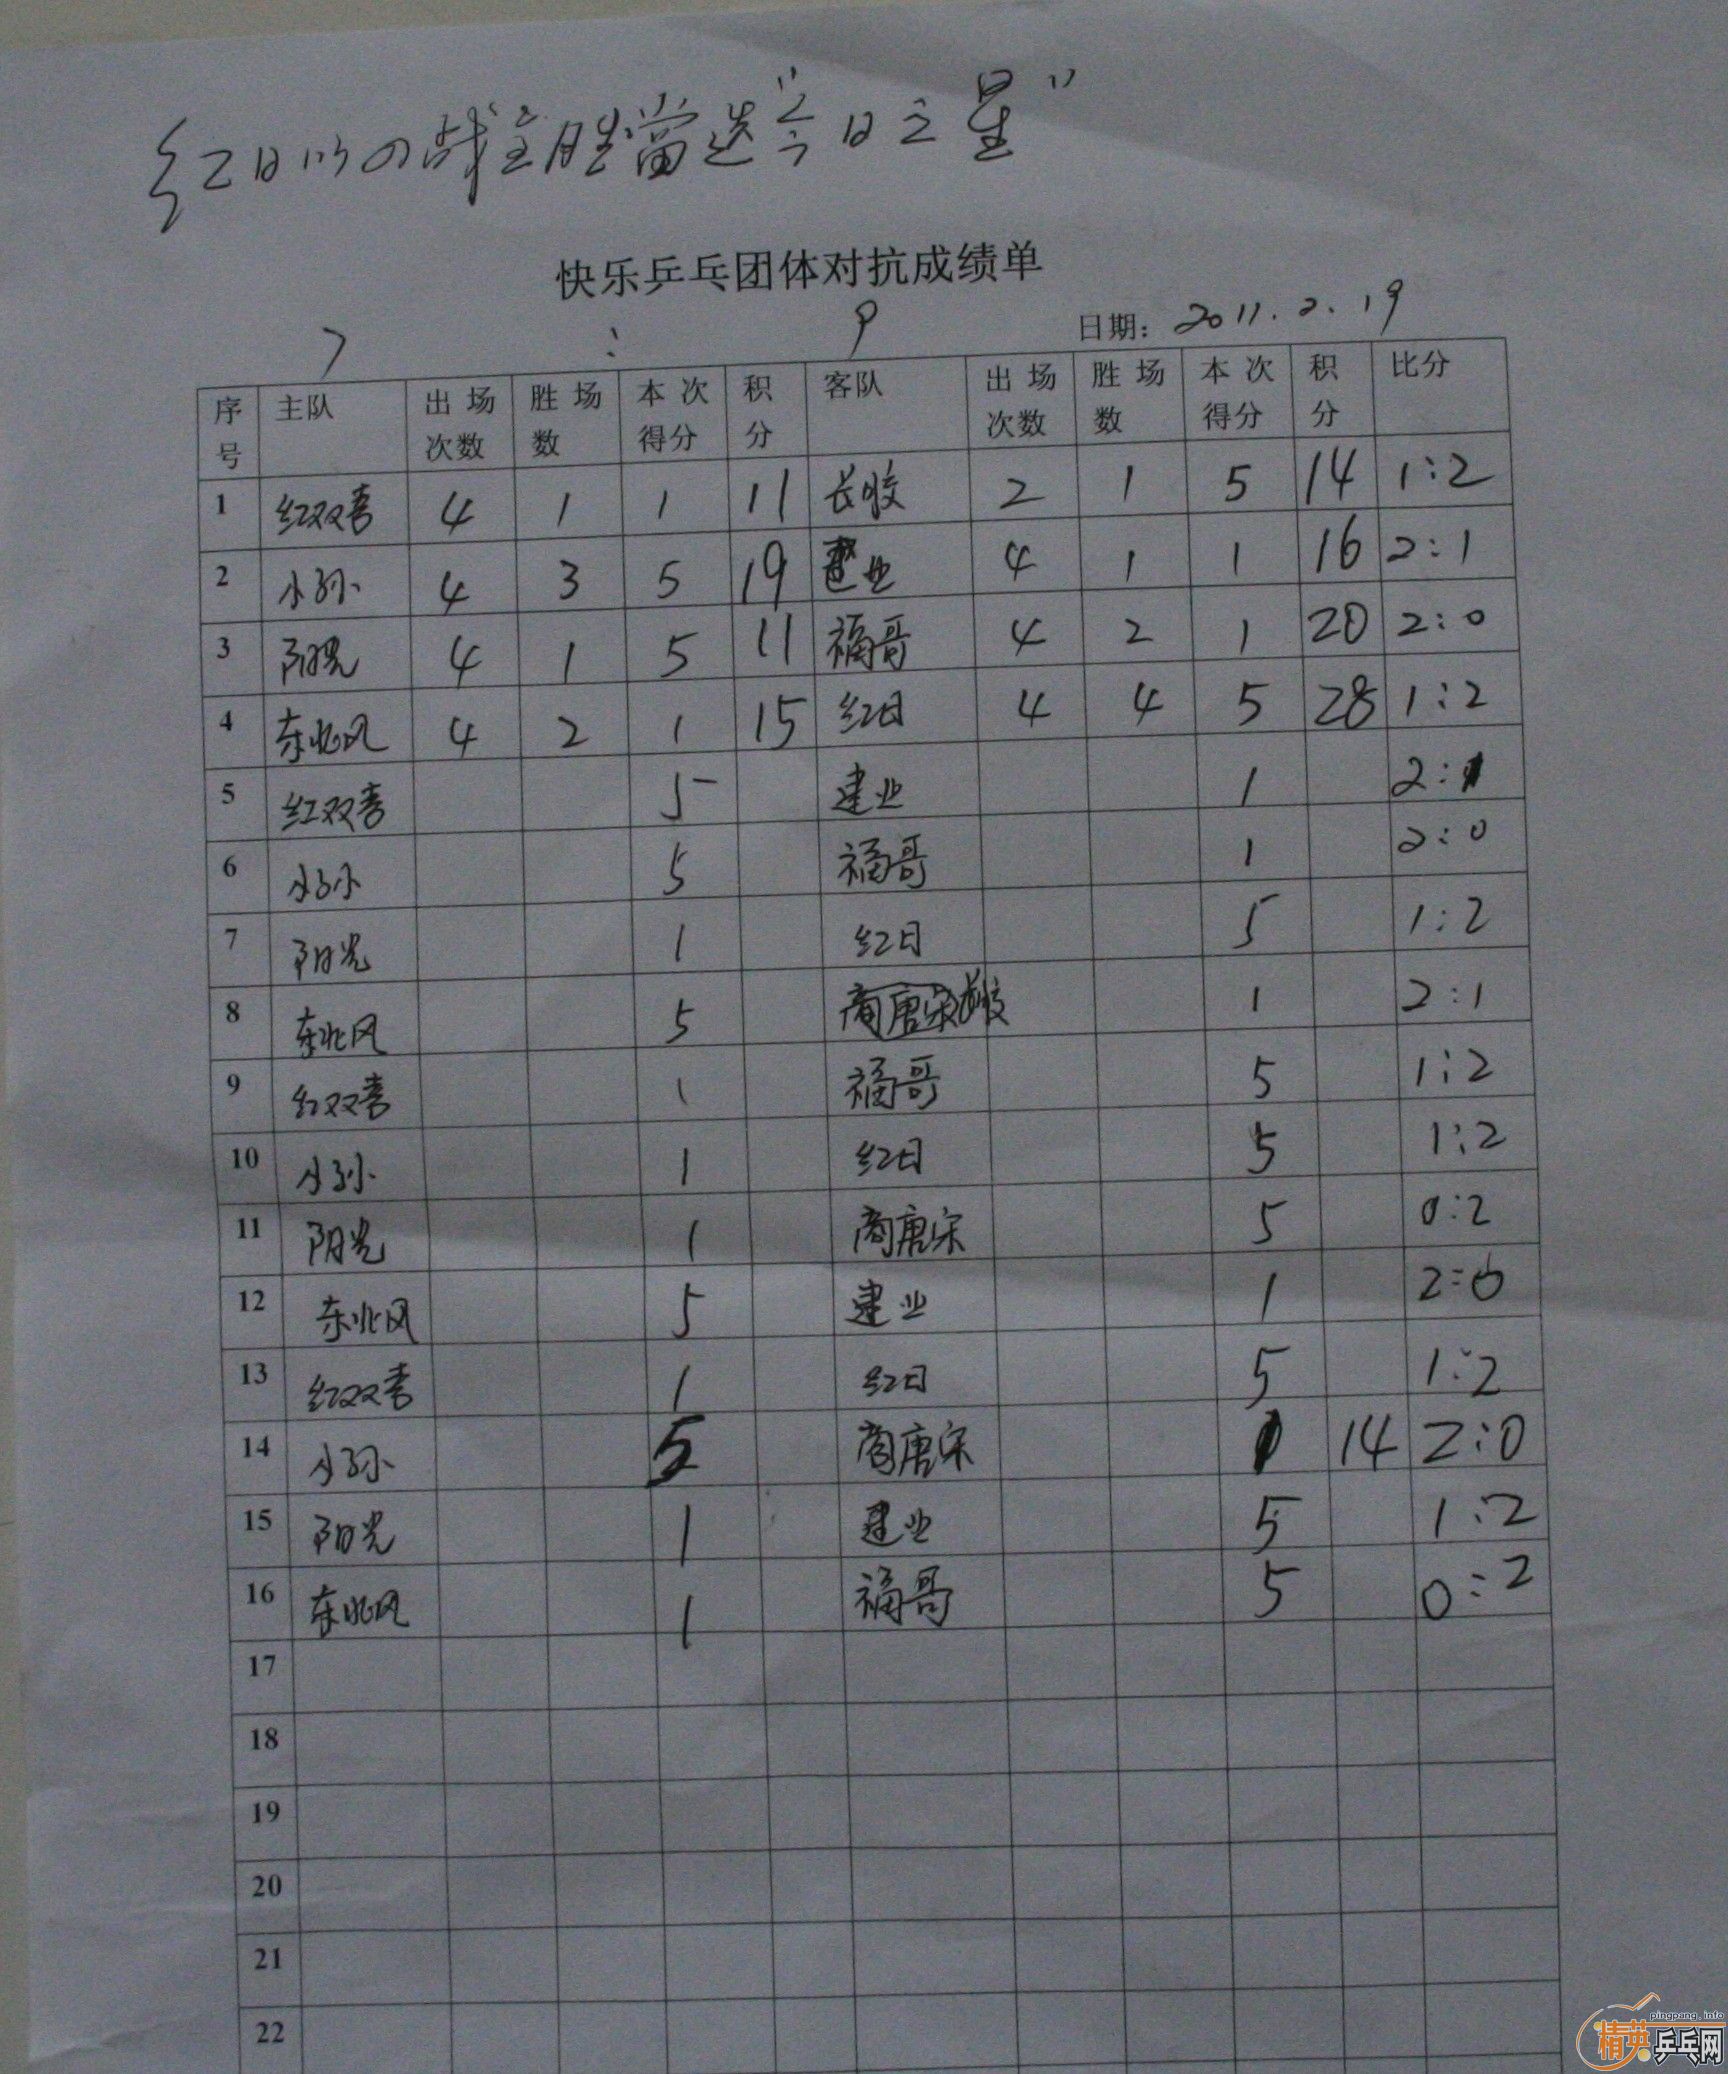 红日以四战全胜當选“今日之星”
快乐乒乓团体对抗成绩单
7 : 9
日期: 2011.2.19
序号 主队 出场次数 胜场数 本次得分 积分 客队 出场次数 胜场数 本次得分 积分 比分
1 红双喜 4 1 1 11 长胶 2 1 5 14 1:2
2 小孙 4 3 5 19 建业 4 1 1 16 2:1
3 阳光 4 1 5 11 福哥 4 2 1 20 2:0
4 东北风 4 2 1 15 红日 4 4 5 28 1:2
5 红双喜 5 建业 1 2:1
6 小孙 5 福哥 1 2:0
7 阳光 1 红日 5 1:2
8 东北风 5 商唐宋 长胶 1 2:1
9 红双喜 1 福哥 5 1:2
10 小孙 1 红日 5 1:2
11 阳光 1 商唐宋 5 0:2
12 东北风 5 建业 1 2:0
13 红双喜 1 红日 5 1:2
14 小孙 5 商唐宋 1 14 2:0
15 阳光 1 建业 5 1:2
16 东北风 1 福哥 5 0:2
17
18
19
20
21
22
pingpang.info
精英乒乓网